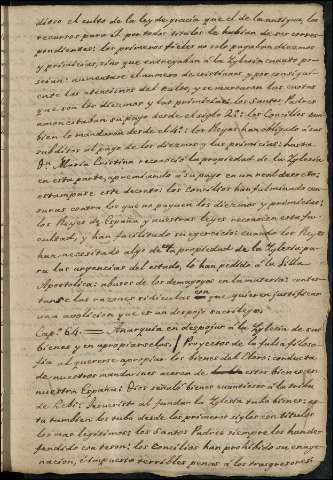 dioso el culto de la ley de gracia que el de la antigua, los
recursos para él por todos titulos le habian de ser corres-
pondientes: los primeros fieles no solo pagaban diezmos
y primicias, sino que entregaban á la Yglesia cuanto po-
seian: aumentase el numero de cristianos, y por consigui-
ente las atenciones del culto, y se marcaron las cuotas
que son los diezmos y las primicias: los Santos Padres
amonestaban su pago desde el siglo 2º: los Concilios tam-
bien lo mandaron desde el 4º: los Reyes han obligado á sus
subditos al pago de los diezmos y las primicias: hasta
Dª Maria Cristina reconoció la propiedad de la Yglesia
en esta parte, apremiando á su pago en un real decreto:
estampase este decreto: los Concilios han fulminado cen-
suras contra los que no paguen los diezmos y primicias:
los Reyes de España y nuestras leyes reconocen esta fa-
cultad, y han facilitado su egercicio: cuando los Reyes
han necesitado algo de la propiedad de la Yglesia pa-
ra las urgencias del estado, lo han pedido á la Silla
Apostolica: abusos de los demagogos en la materia: contes-
tanse las razones ridiculas con que quieren justificar
una abolicion que es un despojo sacrilego.
Capº 64. = Anarquia en despojar á la Yglesia de sus
bienes y en apropiarselos. / Proyectos de la falsa filoso-
fia al quererse apropiar los bienes del Clero: conducta
de nuestros mandarines acerca de estos bienes en
nuestra España: Dios señaló bienes cuantiosos á la tribu
de Levi: Jesucristo al fundar la Yglesia tuvo bienes: es-
ta tambien los tubo desde los primeros siglos con titulos
los mas legitimos: los Santos Padres siempre los han de-
fendido con teson: los Concilios han prohibido su enage-
nacion, é impuesto terribles penas á los trasgresores: